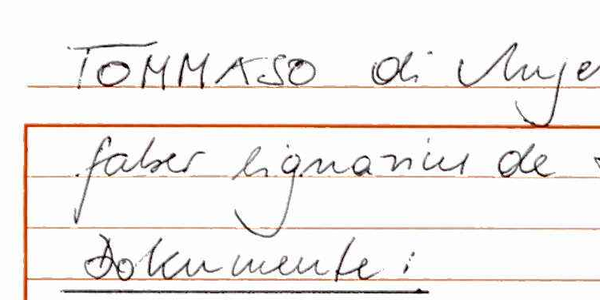 TOMMASO di Ange
faber lignarius de
Dokumente: